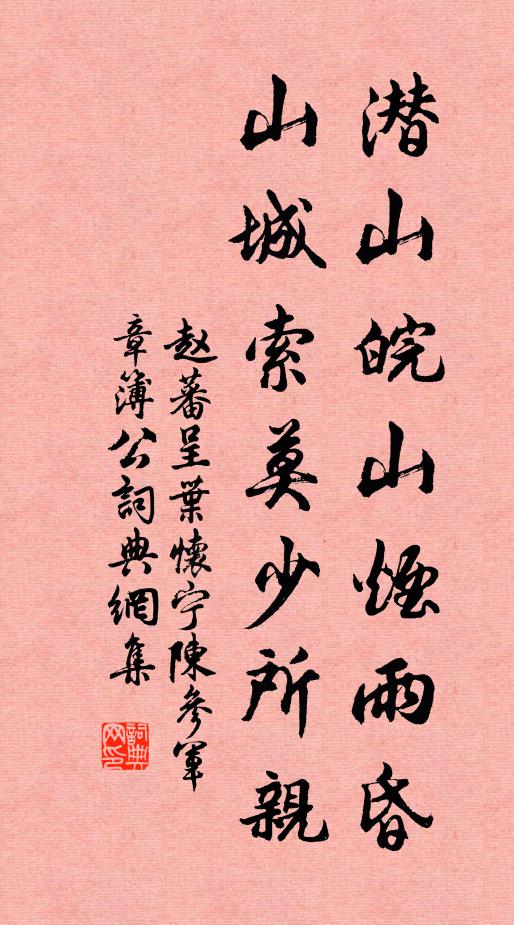 潜山皖山煙雨昏
山城索莫少所親
赵蕃呈葉懷宁陳參軍
章簿公詞典網集
詞典网印